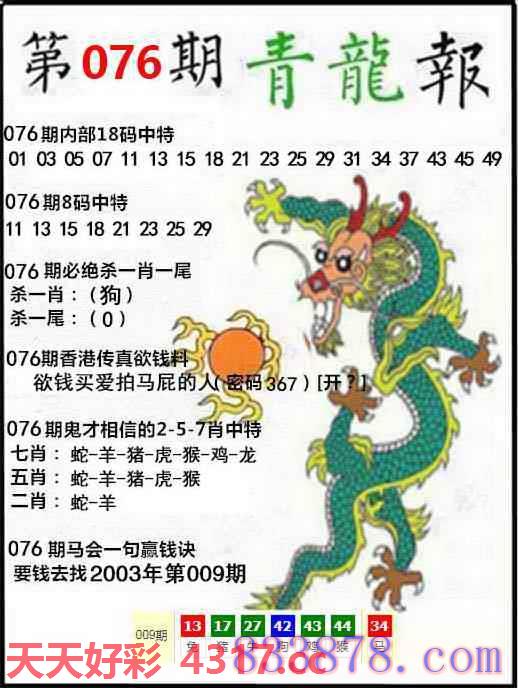 第076期 青龍報
076期内部18码中特
01 03 05 07 11 13 15 18 21 23 25 29 31 34 37 43 45 49
076期8码中特
11 13 15 18 21 23 25 29
076期必绝杀一肖一尾
杀一肖：(狗)
杀一尾：(0)
076期香港传真欲钱料
欲钱买爱拍马屁的人(密码367)[开?]
076期鬼才相信的2-5-7肖中特
七肖：蛇-羊-猪-虎-猴-鸡-龙
五肖：蛇-羊-猪-虎-猴
二肖：蛇-羊
076期马会一句赢钱诀
要钱去找2003年第009期
009期 13 17 27 42 43 44 34
兔 猪 牛 狗 鸡 猴 马
天天好彩 4317.cc